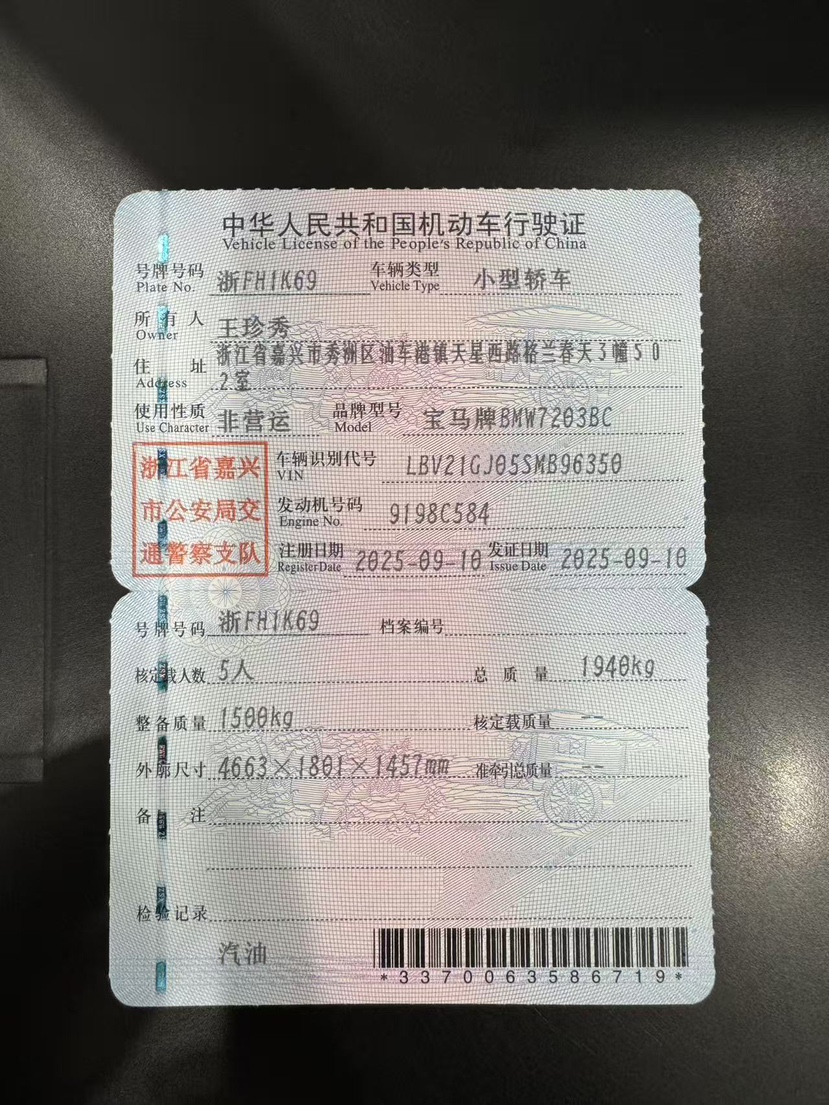 中华人民共和国机动车行驶证
Vehicle License of the People's Republic of China
号牌号码 浙FH1K69 车辆类型 小型轿车
Plate No. Vehicle Type
所有人 王珍秀
Owner
住址 浙江省嘉兴市秀洲区油车港镇天星西路格兰春天3幢50
Address 2室
使用性质 非营运 品牌型号 宝马牌BMW7203BC
Use Character Model
浙江省嘉兴
市公安局交
通警察支队
车辆识别代号 LBV21GJ05SMB96350
VIN
发动机号码 9198C584
Engine No.
注册日期 2025-09-10 发证日期 2025-09-10
Register Date Issue Date
号牌号码 浙FH1K69 档案编号
核定载人数 5人 总质量 1940kg
整备质量 1500kg 核定载质量 --
外廓尺寸 4663×1801×1457mm 准牵引总质量 --
备注
检验记录
汽油
*3370063586719*